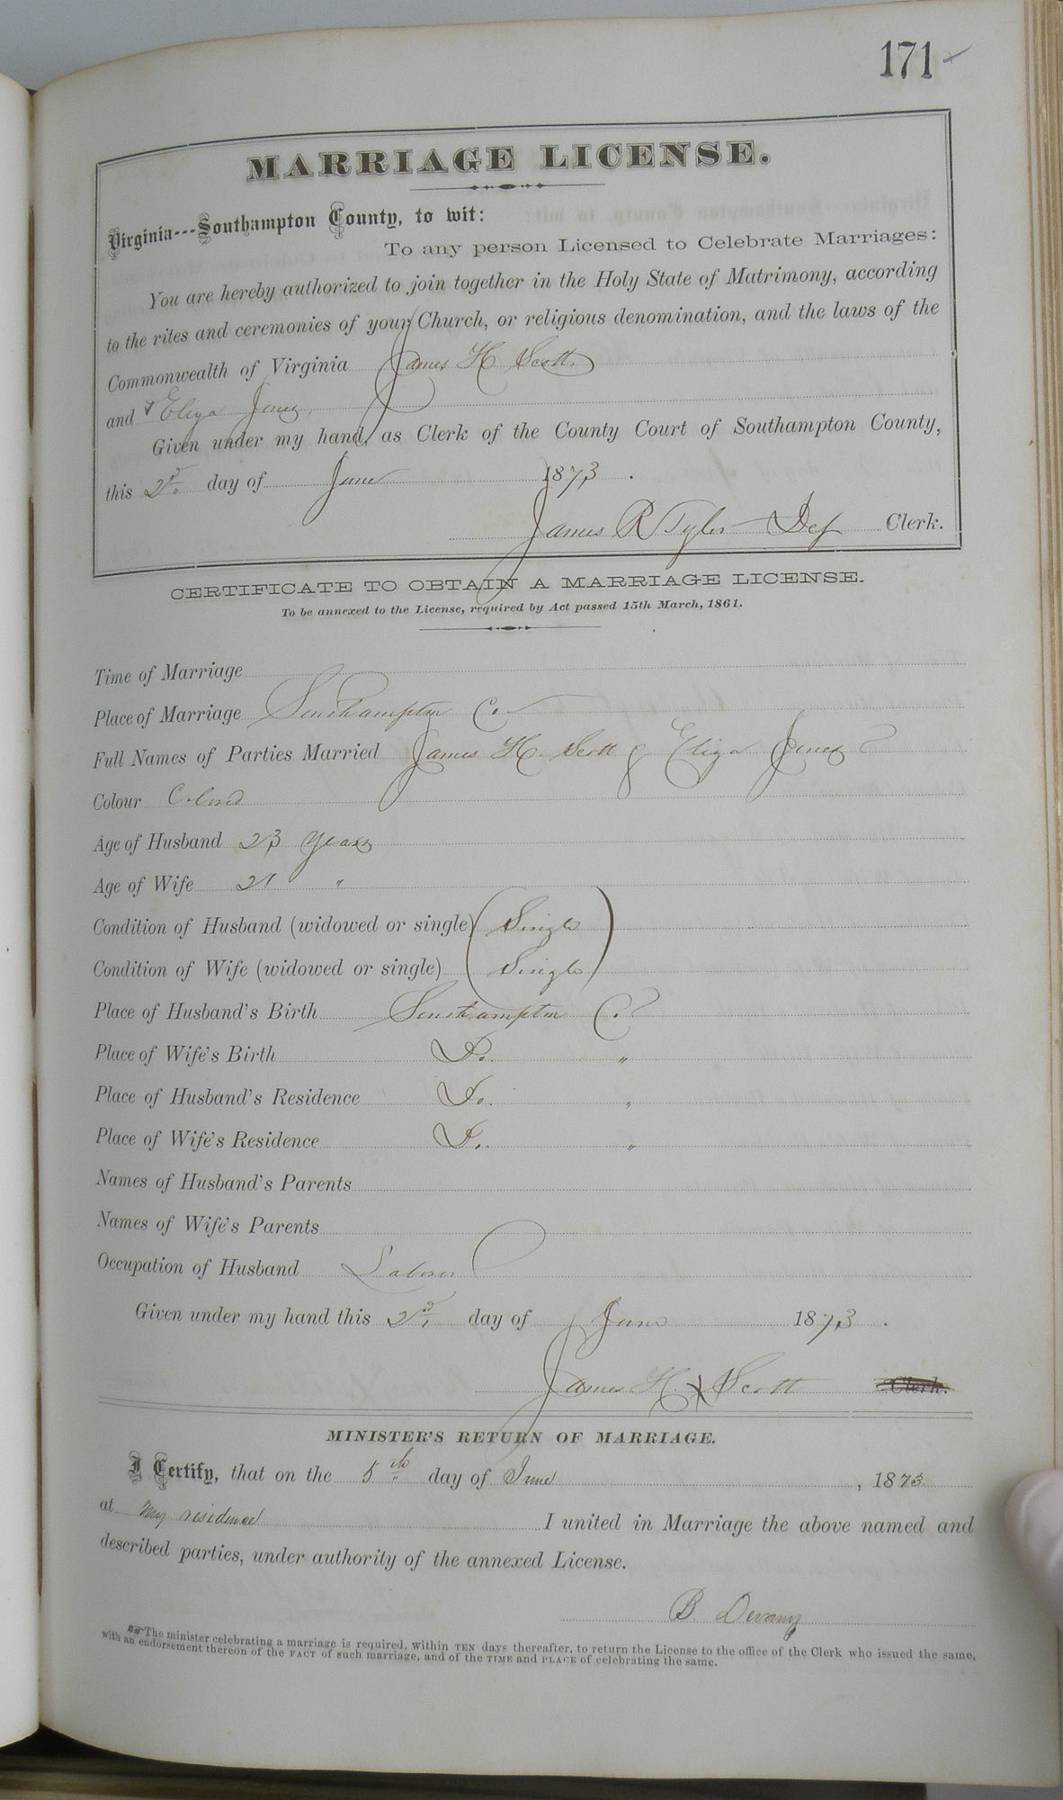 171
MARRIAGE LICENSE.
Virginia---Southampton County, to wit:
To any person Licensed to Celebrate Marriages:
You are hereby authorized to join together in the Holy State of Matrimony, according
to the rites and ceremonies of your Church, or religious denomination, and the laws of the
Commonwealth of Virginia James H Scott
and Eliza
Given under my hand, as Clerk of the County Court of Southampton County,
this 2d. day of June 1873.
James R Tyler Dep Clerk.
CERTIFICATE TO OBTAIN A MARRIAGE LICENSE.
To be annexed to the License, required by Act passed 15th March, 1861.
Time of Marriage
Place of Marriage Southampton Co.
Full Names of Parties Married James H. Scott & Eliza
Colour Colored
Age of Husband 23 Years
Age of Wife 21 "
Condition of Husband (widowed or single) Single
Condition of Wife (widowed or single) Single
Place of Husband's Birth Southampton Co.
Place of Wife's Birth Do. "
Place of Husband's Residence Do. "
Place of Wife's Residence Do. "
Names of Husband's Parents
Names of Wife's Parents
Occupation of Husband Laborer
Given under my hand this 2d. day of June 1873.
James H. X Scott Clerk.
MINISTER'S RETURN OF MARRIAGE.
I Certify, that on the 5th day of June, 1873
at my residence I united in Marriage the above named and
described parties, under authority of the annexed License.
B.
The minister celebrating a marriage is required, within TEN days thereafter, to return the License to the office of the Clerk who issued the same,
with an endorsement thereon of the FACT of such marriage, and of the TIME and PLACE of celebrating the same.